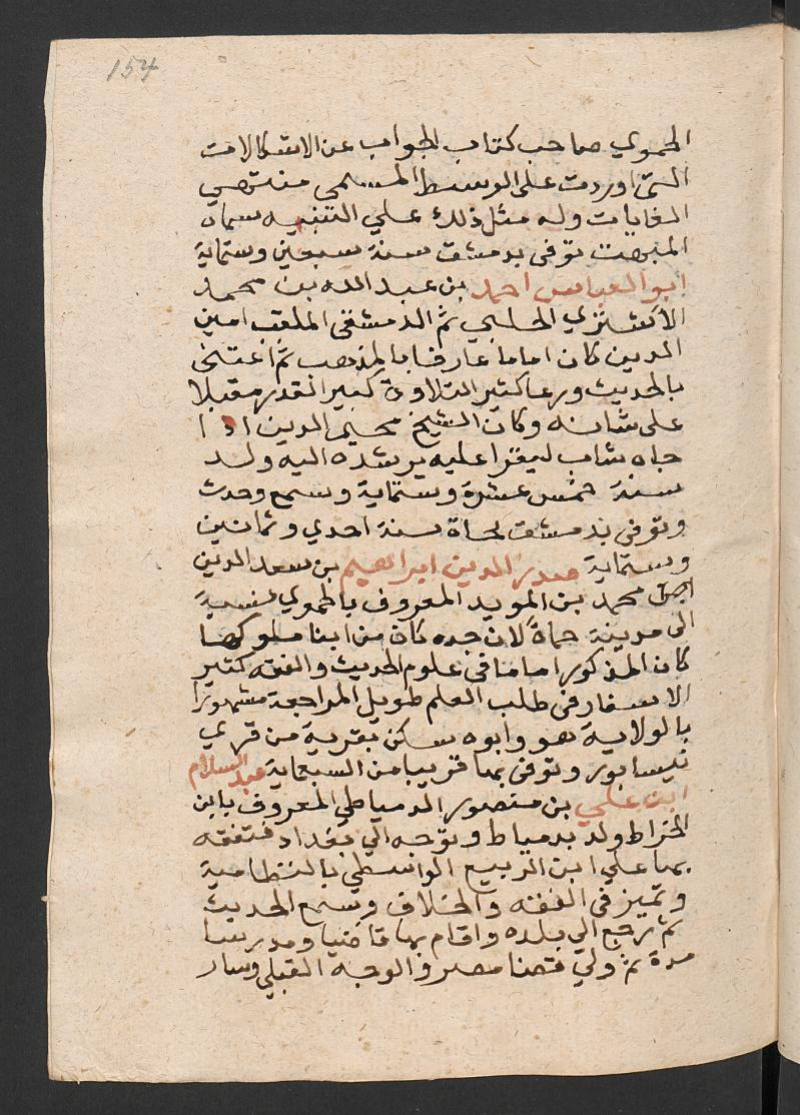 154
الحموي صاحب كتاب الجواب عن الاشكالات
التى اوردت على الوسيط المسمى منتهى
الغايات وله مثل ذلك على التنبيه سماه
المبهت توفى بدمشق سنة سبعين وستماية
ابو العباس احمد بن عبد الله بن محمد
الاشتري الحلبي ثم الدمشقى الملقب امين
الدين كان اماما عارفا بالمذهب ثم اعتنى
بالحديث ورعا كثير التلاوة كبير القدر مقبلا
على شانه وكان الشيخ محيى الدين اذا
جاه شاب ليقرا عليه يرشده اليه ولد
سنة خمس عشرة وستماية وسمع وحدث
وتوفى بدمشق فجاة سنة احدي وثمانين
وستماية صدر الدين ابراهيم بن سعد الدين
محمد بن المويد المعروف بالحموي نسبة
الى مدينة حماة لان جده كان من ابنا ملوكها
كان المذكور اماما فى علوم الحديث والفقه كثير
الاسفار فى طلب العلم طويل المراجعة مشهورا
بالولاية هو وابوه سكن بقرية من قري
نيسابور وتوفى بها قريبا من السبعماية عبد السلام
ابن علي بن منصور الدمياطي المعروف بابن
الخراط ولد بدمياط وتوجه الي بغداد فتفقه
بها علي ابن الربيع الواسطي بالنظامية
وتميز فى الفقه والخلاف وسمع الحديث
ثم رجع الي بلده واقام بها قاضيا ومدرسا
مدة ثم ولي قضا مصر والوجه القبلي وسار